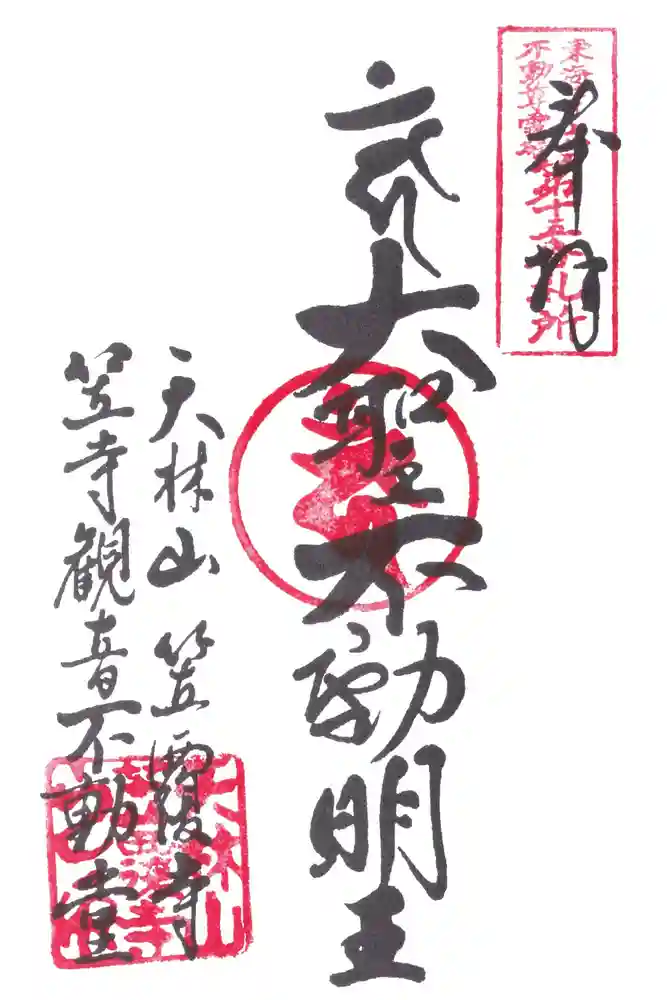 奉拝
東海
不動尊霊場
第十五番札所
大聖不動明王
天林山 笠覆寺
笠寺観音不動堂
天林山